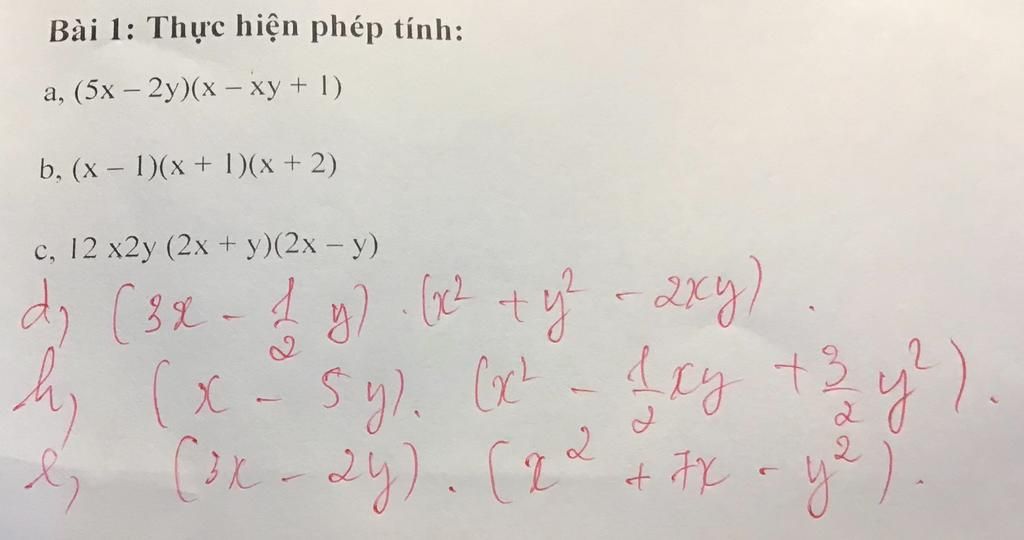 Bài 1: Thực hiện phép tính:
a, (5x – 2y)(x – xy + 1)
b, (x – 1)(x + 1)(x + 2)
c, 12 x2y (2x + y)(2x – y)
d, (3x - 1/2 y) . (x² + y² - 2xy) .
h, (x - 5y). (x² - 1/2 xy + 3/2 y²).
e, (3x - 2y) . (x² + 7x - y²) .